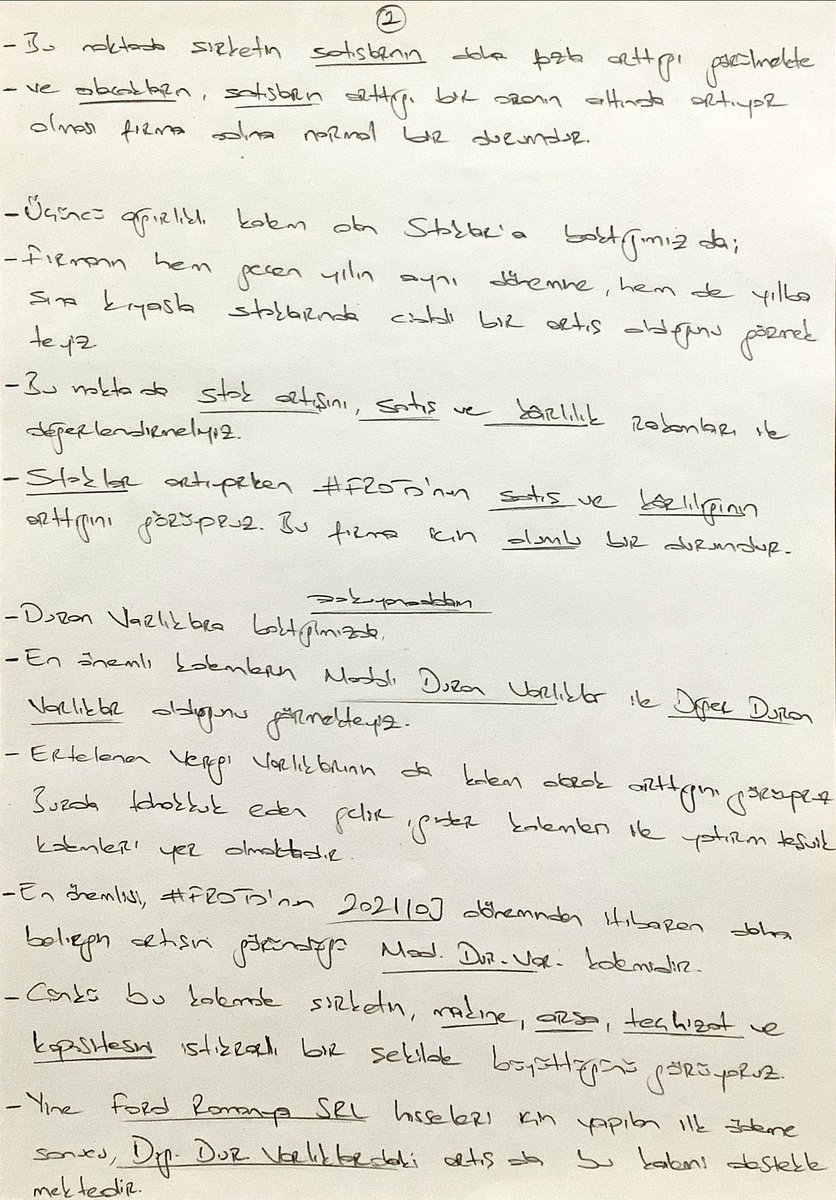 2
- Bu noktada şirketin satışlarının daha fazla arttığı görülmekte
- ve alacakların, satışların arttığı bir oranın altında artıyor
olması firma adına normal bir durumdur.
- Üçüncü ağırlıklı kalem olan Stoklar'a baktığımız da;
- Firmanın hem geçen yılın aynı dönemine, hem de yılba
şına kıyasla stoklarında ciddi bir artış olduğunu görmek
teyiz.
- Bu noktada stok artışını, satış ve kârlılık rakamları ile
değerlendirmeliyiz.
- Stoklar artıyorken #FROTO'nun satış ve kârlılığının
arttığını görüyoruz. Bu firma için olumlu bir durumdur.
- Duran Varlıklara baktığımızda,
- En önemli kalemlerin Maddi Duran Varlıklar ile Diğer Duran
Varlıklar olduğunu görmekteyiz.
- Ertelenen Vergi Varlıklarının da kalem olarak arttığını görüyoruz
Burada tahakkuk eden gelir, gider kalemleri ile yatırım teşvik
kalemleri yer almaktadır.
- En önemlisi, #FROTO'nun 2021/03 döneminden itibaren daha
belirgin artışın göründüğü Mad. Dur. Var. kalemidir.
- Çünkü bu kalemde şirketin, makine, arsa, teçhizat ve
kapasitesini istikrarlı bir şekilde büyüttüğünü görüyoruz.
- Yine Ford Romanya SRL hisseleri için yapılan ilk ödeme
sonucu, Diğ. Dur Varlıklardaki artış da bu kalemi destekle
mektedir.